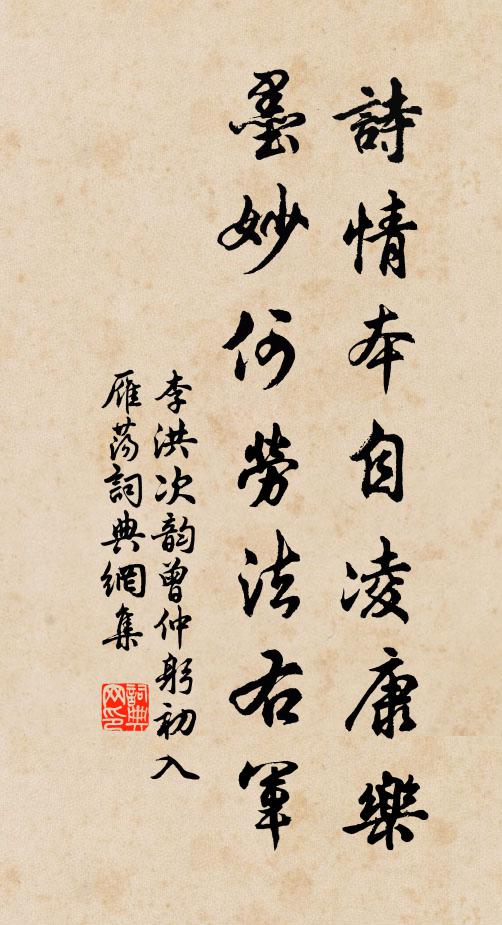 詩情本自凌康樂
墨妙何勞法右軍
李洪次韵曾仲躬初入
雁蕩詞典網集
詞典网印